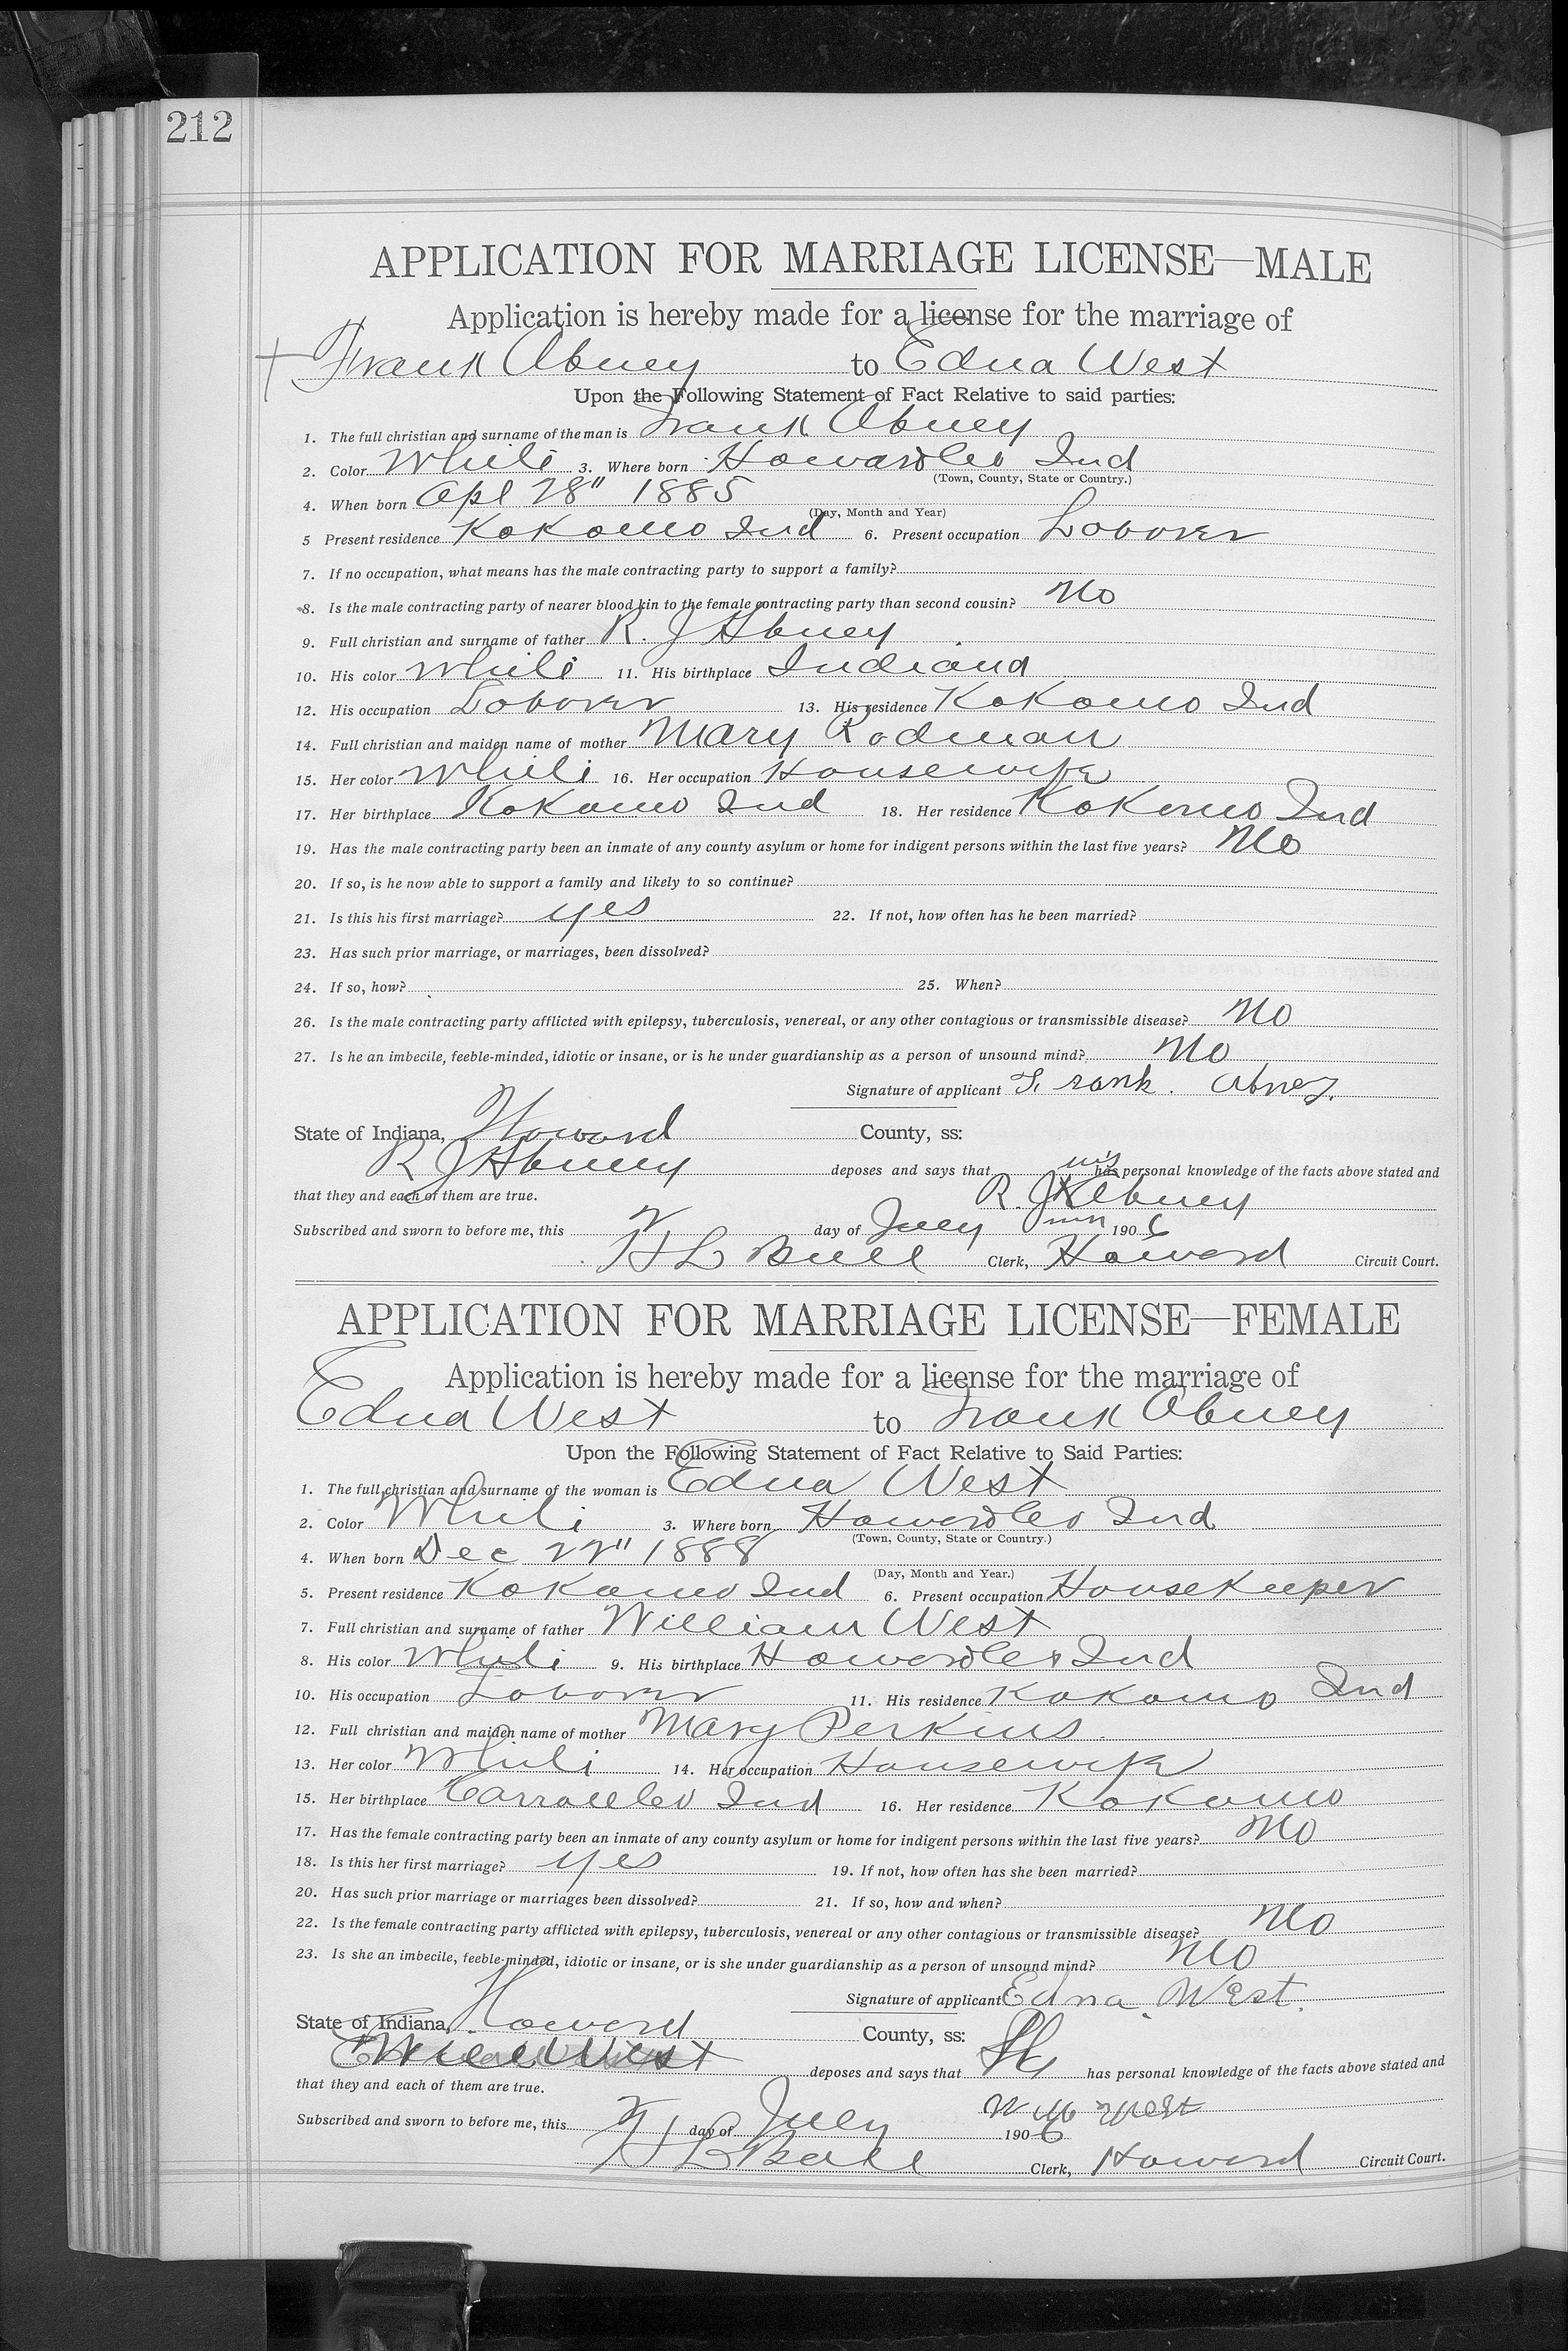 212
APPLICATION FOR MARRIAGE LICENSE—MALE
Application is hereby made for a license for the marriage of
Frank Abney to Edna West
Upon the Following Statement of Fact Relative to said parties:
1. The full christian and surname of the man is Frank Abney
2. Color White 3. Where born Howard Co Ind
(Town, County, State or Country.)
4. When born Apl 28" 1885
(Day, Month and Year)
5 Present residence Kokomo Ind 6. Present occupation Laborer
7. If no occupation, what means has the male contracting party to support a family?
8. Is the male contracting party of nearer blood kin to the female contracting party than second cousin? No
9. Full christian and surname of father R. J Abney
10. His color White 11. His birthplace Indiana
12. His occupation Laborer 13. His residence Kokomo Ind
14. Full christian and maiden name of mother Mary Rodman
15. Her color White 16. Her occupation Housewife
17. Her birthplace Kokomo Ind 18. Her residence Kokomo Ind
19. Has the male contracting party been an inmate of any county asylum or home for indigent persons within the last five years? No
20. If so, is he now able to support a family and likely to so continue?
21. Is this his first marriage? yes 22. If not, how often has he been married?
23. Has such prior marriage, or marriages, been dissolved?
24. If so, how? 25. When?
26. Is the male contracting party afflicted with epilepsy, tuberculosis, venereal, or any other contagious or transmissible disease? No
27. Is he an imbecile, feeble-minded, idiotic or insane, or is he under guardianship as a person of unsound mind? No
Signature of applicant Frank. Abney.
State of Indiana, Howard County, ss:
R J Abney deposes and says that has personal knowledge of the facts above stated and
that they and each of them are true. R. J Abney
Subscribed and sworn to before me, this 2 day of July 1906
H L Bull Clerk, Howard Circuit Court.
APPLICATION FOR MARRIAGE LICENSE—FEMALE
Application is hereby made for a license for the marriage of
Edna West to Frank Abney
Upon the Following Statement of Fact Relative to Said Parties:
1. The full christian and surname of the woman is Edna West
2. Color White 3. Where born Howard Co Ind
(Town, County, State or Country.)
4. When born Dec 22" 1888
(Day, Month and Year.)
5. Present residence Kokomo Ind 6. Present occupation Housekeeper
7. Full christian and surname of father William West
8. His color White 9. His birthplace Howard Co Ind
10. His occupation Laborer 11. His residence Kokomo Ind
12. Full christian and maiden name of mother Mary Perkins
13. Her color White 14. Her occupation Housewife
15. Her birthplace Carroll Co Ind 16. Her residence Kokomo
17. Has the female contracting party been an inmate of any county asylum or home for indigent persons within the last five years? No
18. Is this her first marriage? yes 19. If not, how often has she been married?
20. Has such prior marriage or marriages been dissolved? 21. If so, how and when?
22. Is the female contracting party afflicted with epilepsy, tuberculosis, venereal or any other contagious or transmissible disease? No
23. Is she an imbecile, feeble-minded, idiotic or insane, or is she under guardianship as a person of unsound mind? No
Signature of applicant Edna. West.
State of Indiana, Howard County, ss:
West deposes and says that He has personal knowledge of the facts above stated and
that they and each of them are true. Wm West
Subscribed and sworn to before me, this 2 day of July 1906
H L Bull Clerk, Howard Circuit Court.